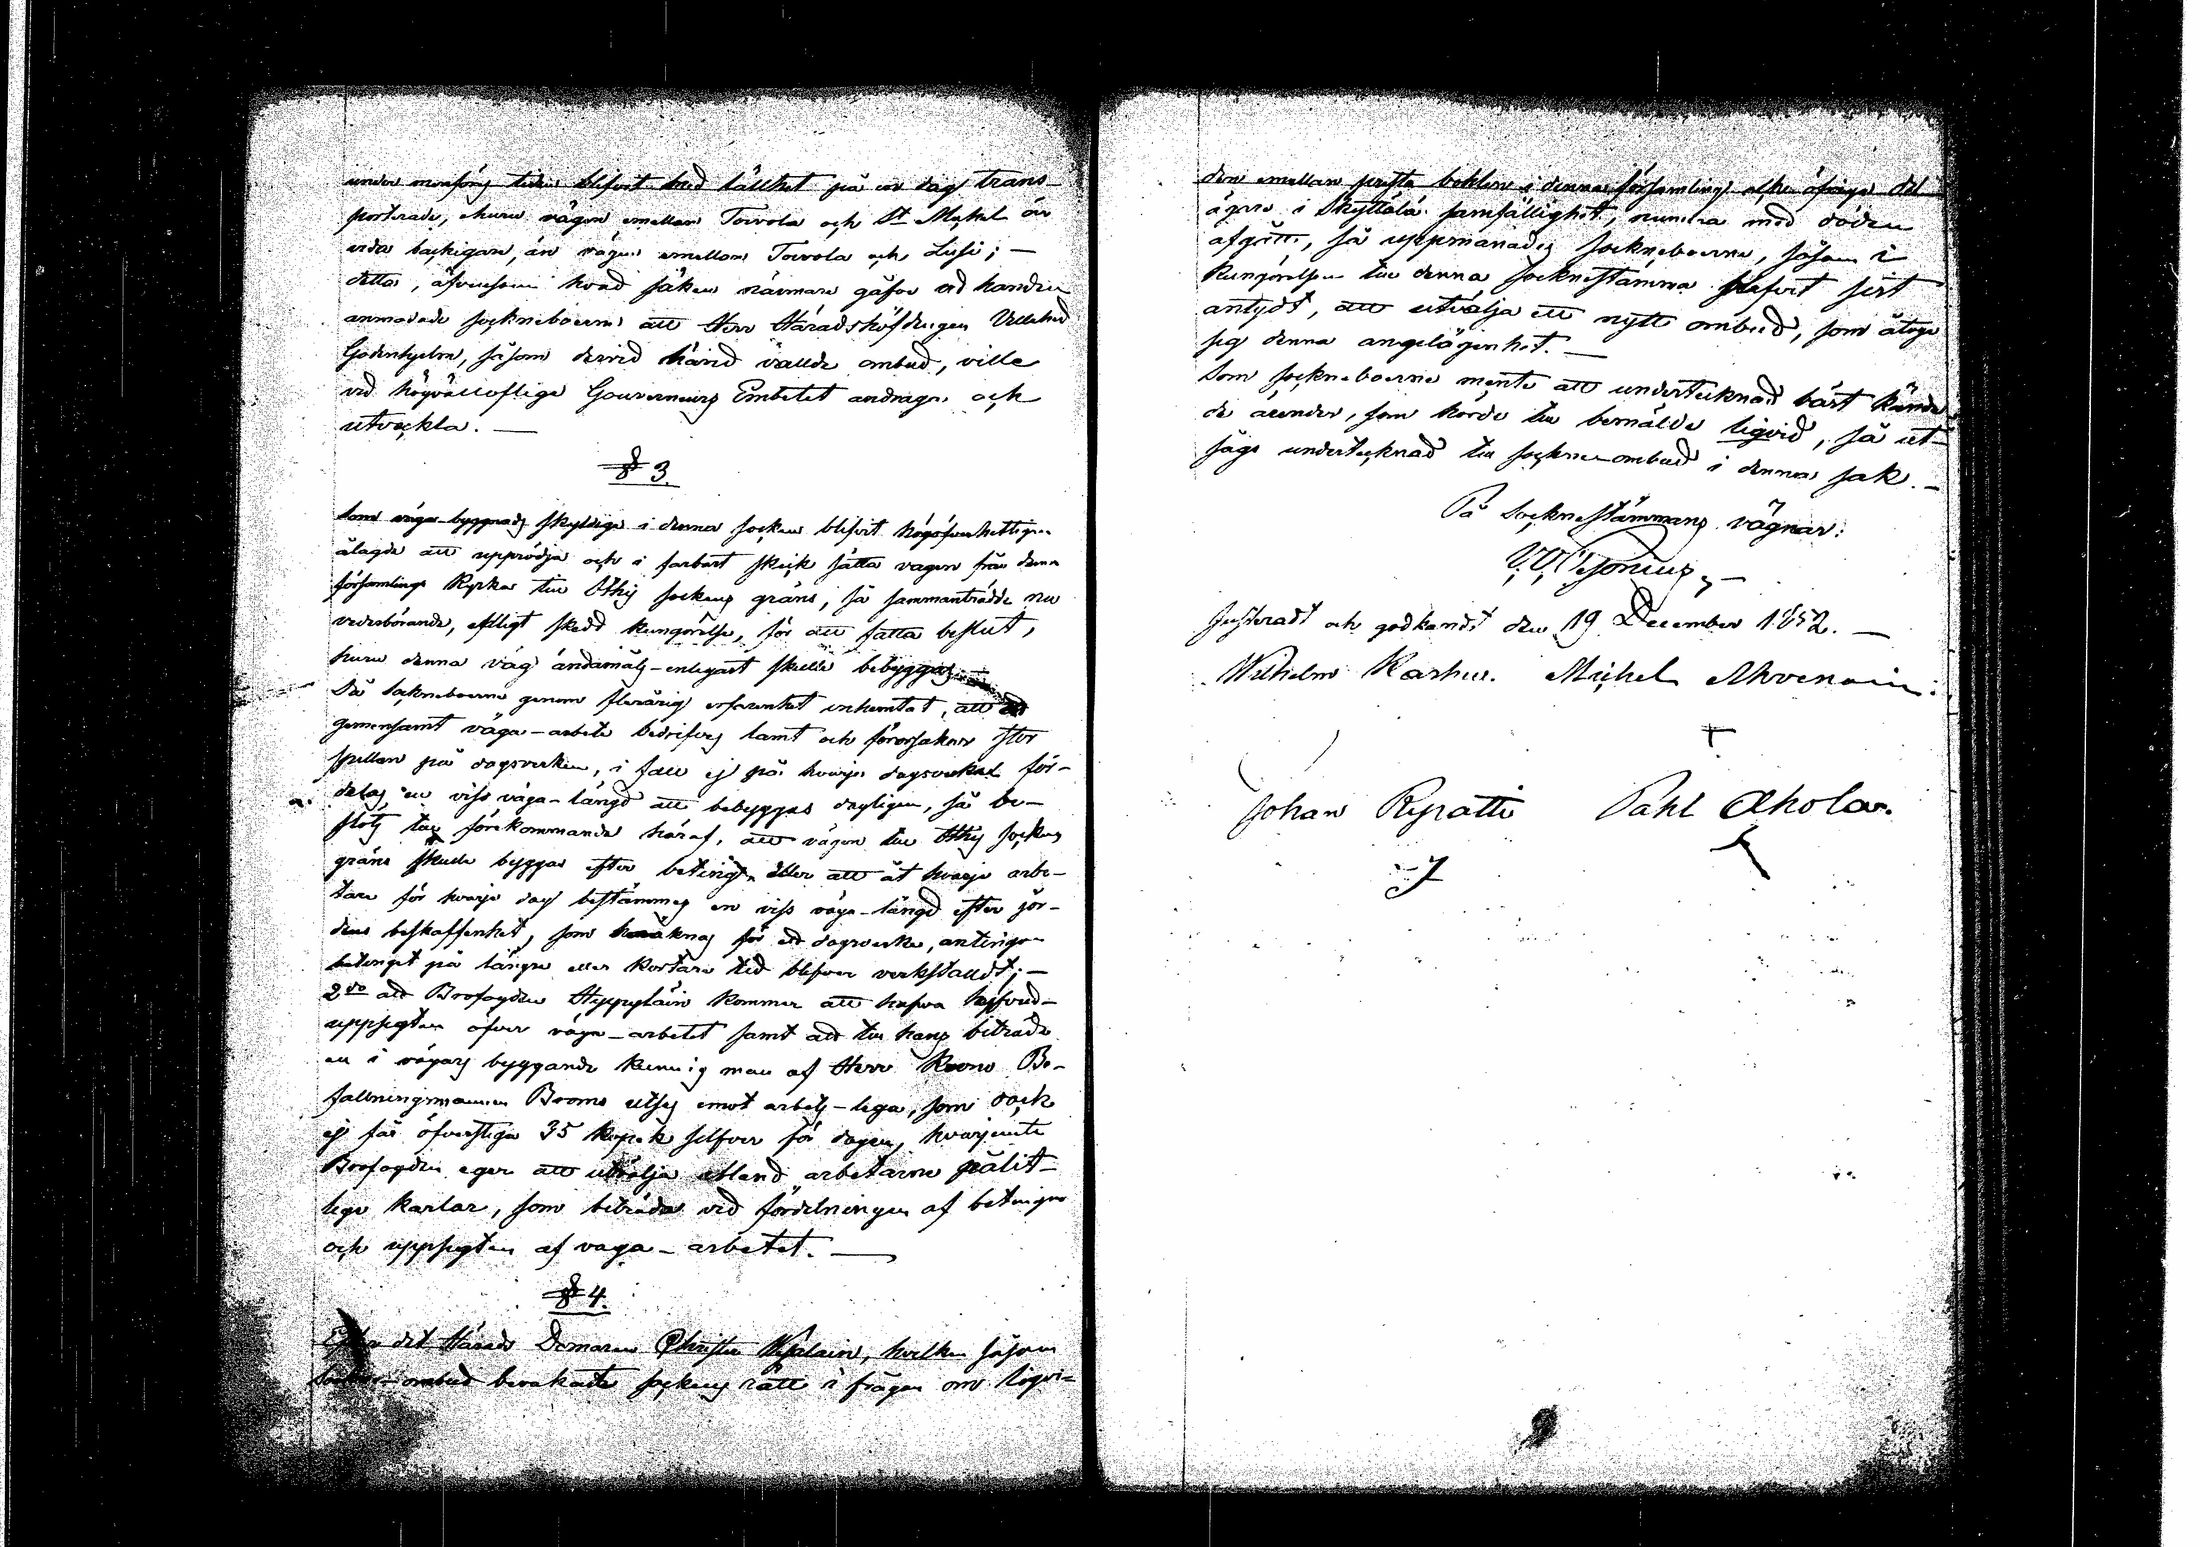 under menföres tiden blifvit med lätthet på en dag trans-
porterade, ehuru vägen emellan Toivola och St Michel är
vida backigare, än vägen emellan Toivola och Lusi; —
detta, äfvensom hvad saken närmare gåfve vid handen
anmodade sockneboerne att Herr Häradshöfdingen Willehad
Godenhjelm, såsom dervid härvid vallde ombud, ville
vid högvälloflige Gouverneurs Embetet andraga och
utveckla. —
§ 3.
Som väga-byggnads skyldige i denna socken blifvit högöfverhetligen
ålagde att upprödja och i farbart skick sätta vägen från denna
församlings Kyrka till Sockens gräns, så sammanträdde nu
vederbörande, efter skedd kungörelse, för att fatta beslut,
huru denna väg ändamåls-enligast skulle bebyggas
Då Sockneboerne genom flerårig erfarenhet inhemtat, att
gemensamt väga-arbete bedrifves lamt och förorsakar stor
spillan på dagsverken, i fall ej på hvarje dagsverke för-
delas en viss väga-längd att bebyggas dagligen, så be-
slöts till förekommande häraf, att vägen till Sockens
gräns skulle byggas efter beting, eller att åt hvarje arbe-
tare för hvarje dag bestämmes en viss väga-längd efter jor-
dens beskaffenhet, som beräknas för ett dagsverke, antingen
betinget på längre eller kortare tid blifver verkstäldt; —
2do att Brofogden Hyppyläin kommer att hafva hufvud-
uppsigten öfver väga-arbetet samt att till hans biträde
en i vägars byggande kunnig man af Herr Krono Be-
fallningsmannen Broms utses emot arbets-lega, som dock
ej får öfverstiga 35 kopek silfver för dagen, hvarjemte
Brofogden eger att utvälja ibland arbetarne pålit-
lige karlar, som biträda vid fördelningen af betingen
och uppsigten af väga-arbetet. —
§ 4.
Efter det Härads Domaren Christer, hvilken såsom
Sockne-ombud bevakade sockens rätt i frågan om liqvi-
den emellan prests bohlen i denna församling och öfrige del
ägare i Skyttälä samfällighet, numera med döden
afgått, så uppmanades sockneboerne, såsom i
Kungörelsen till denna Sockenstämma blifvit
antydt, att utvälja ett nytt ombud, som åtoge
sig denna angelägenhet. —
Som sockneboerne mente att undertecknad bäst kände
de ärenden, som hörde till bemälde liqvid, så ut-
sågs undertecknad till sockne-ombud i denna sak. —
På Sockenstämmans vägnar:
Justeradt och godkändt den 19 December 1852. —
Wilhelm Karhu. Michel Ahvenain:
Johan Pyratti Pahl Ahola.